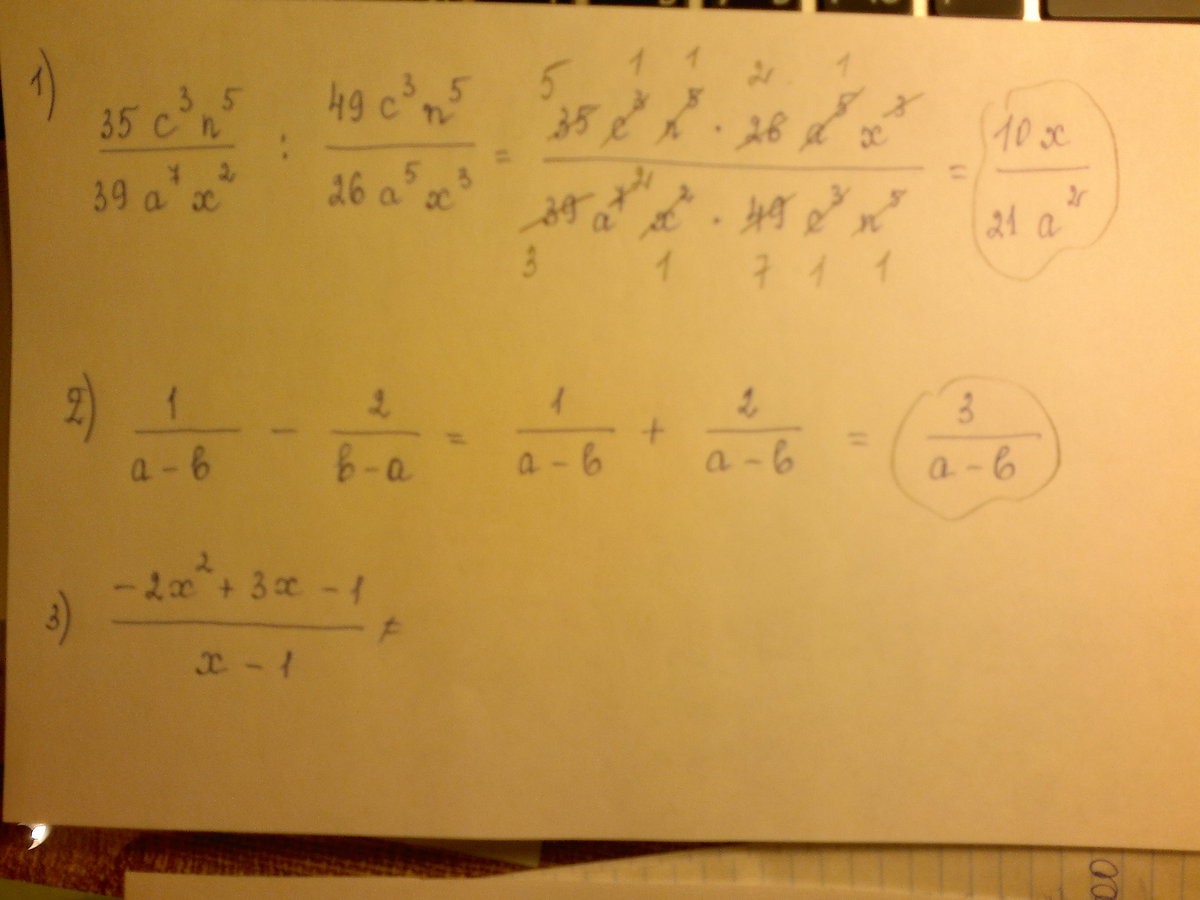 1) 35 c³ n⁵ / 39 a⁷ x² : 49 c³ n⁵ / 26 a⁵ x³ = 35 c³ n⁵ · 26 a⁵ x³ / 39 a⁷ x² · 49 c³ n⁵ = 10 x / 21 a²
5 1 1 2 1
2
3 1 7 1 1
2) 1 / a - b - 2 / b - a = 1 / a - b + 2 / a - b = 3 / a - b
3) -2x² + 3x - 1 / x - 1 =
00